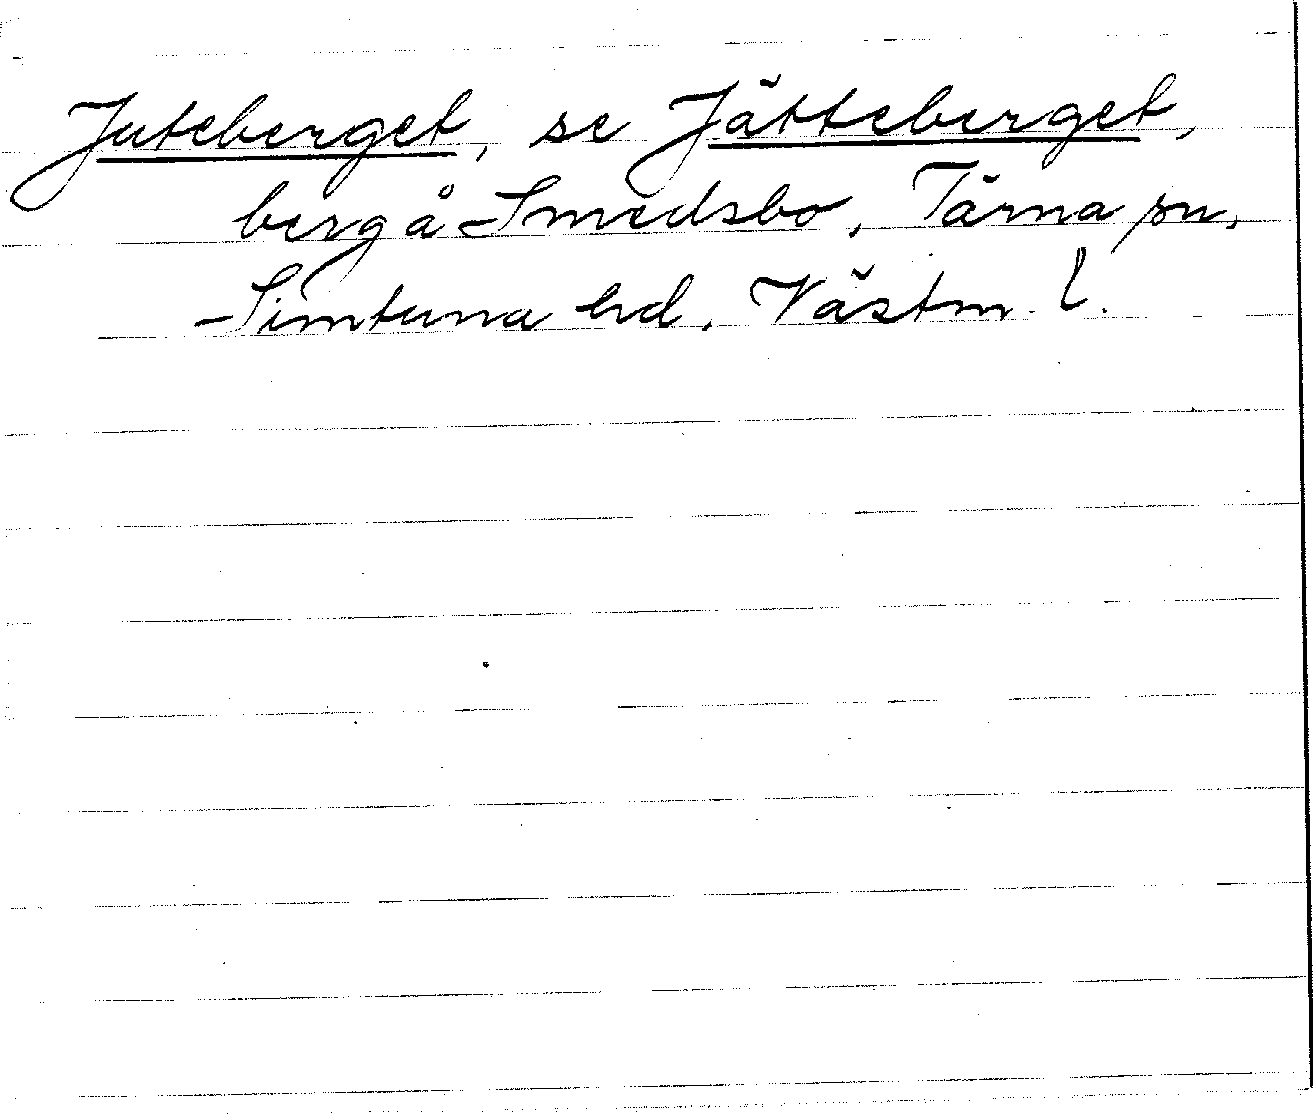 Juteberget, se Jätteberget,
berg å Smedsbo, Tärna sn,
Simtuna hd, Västm. l.